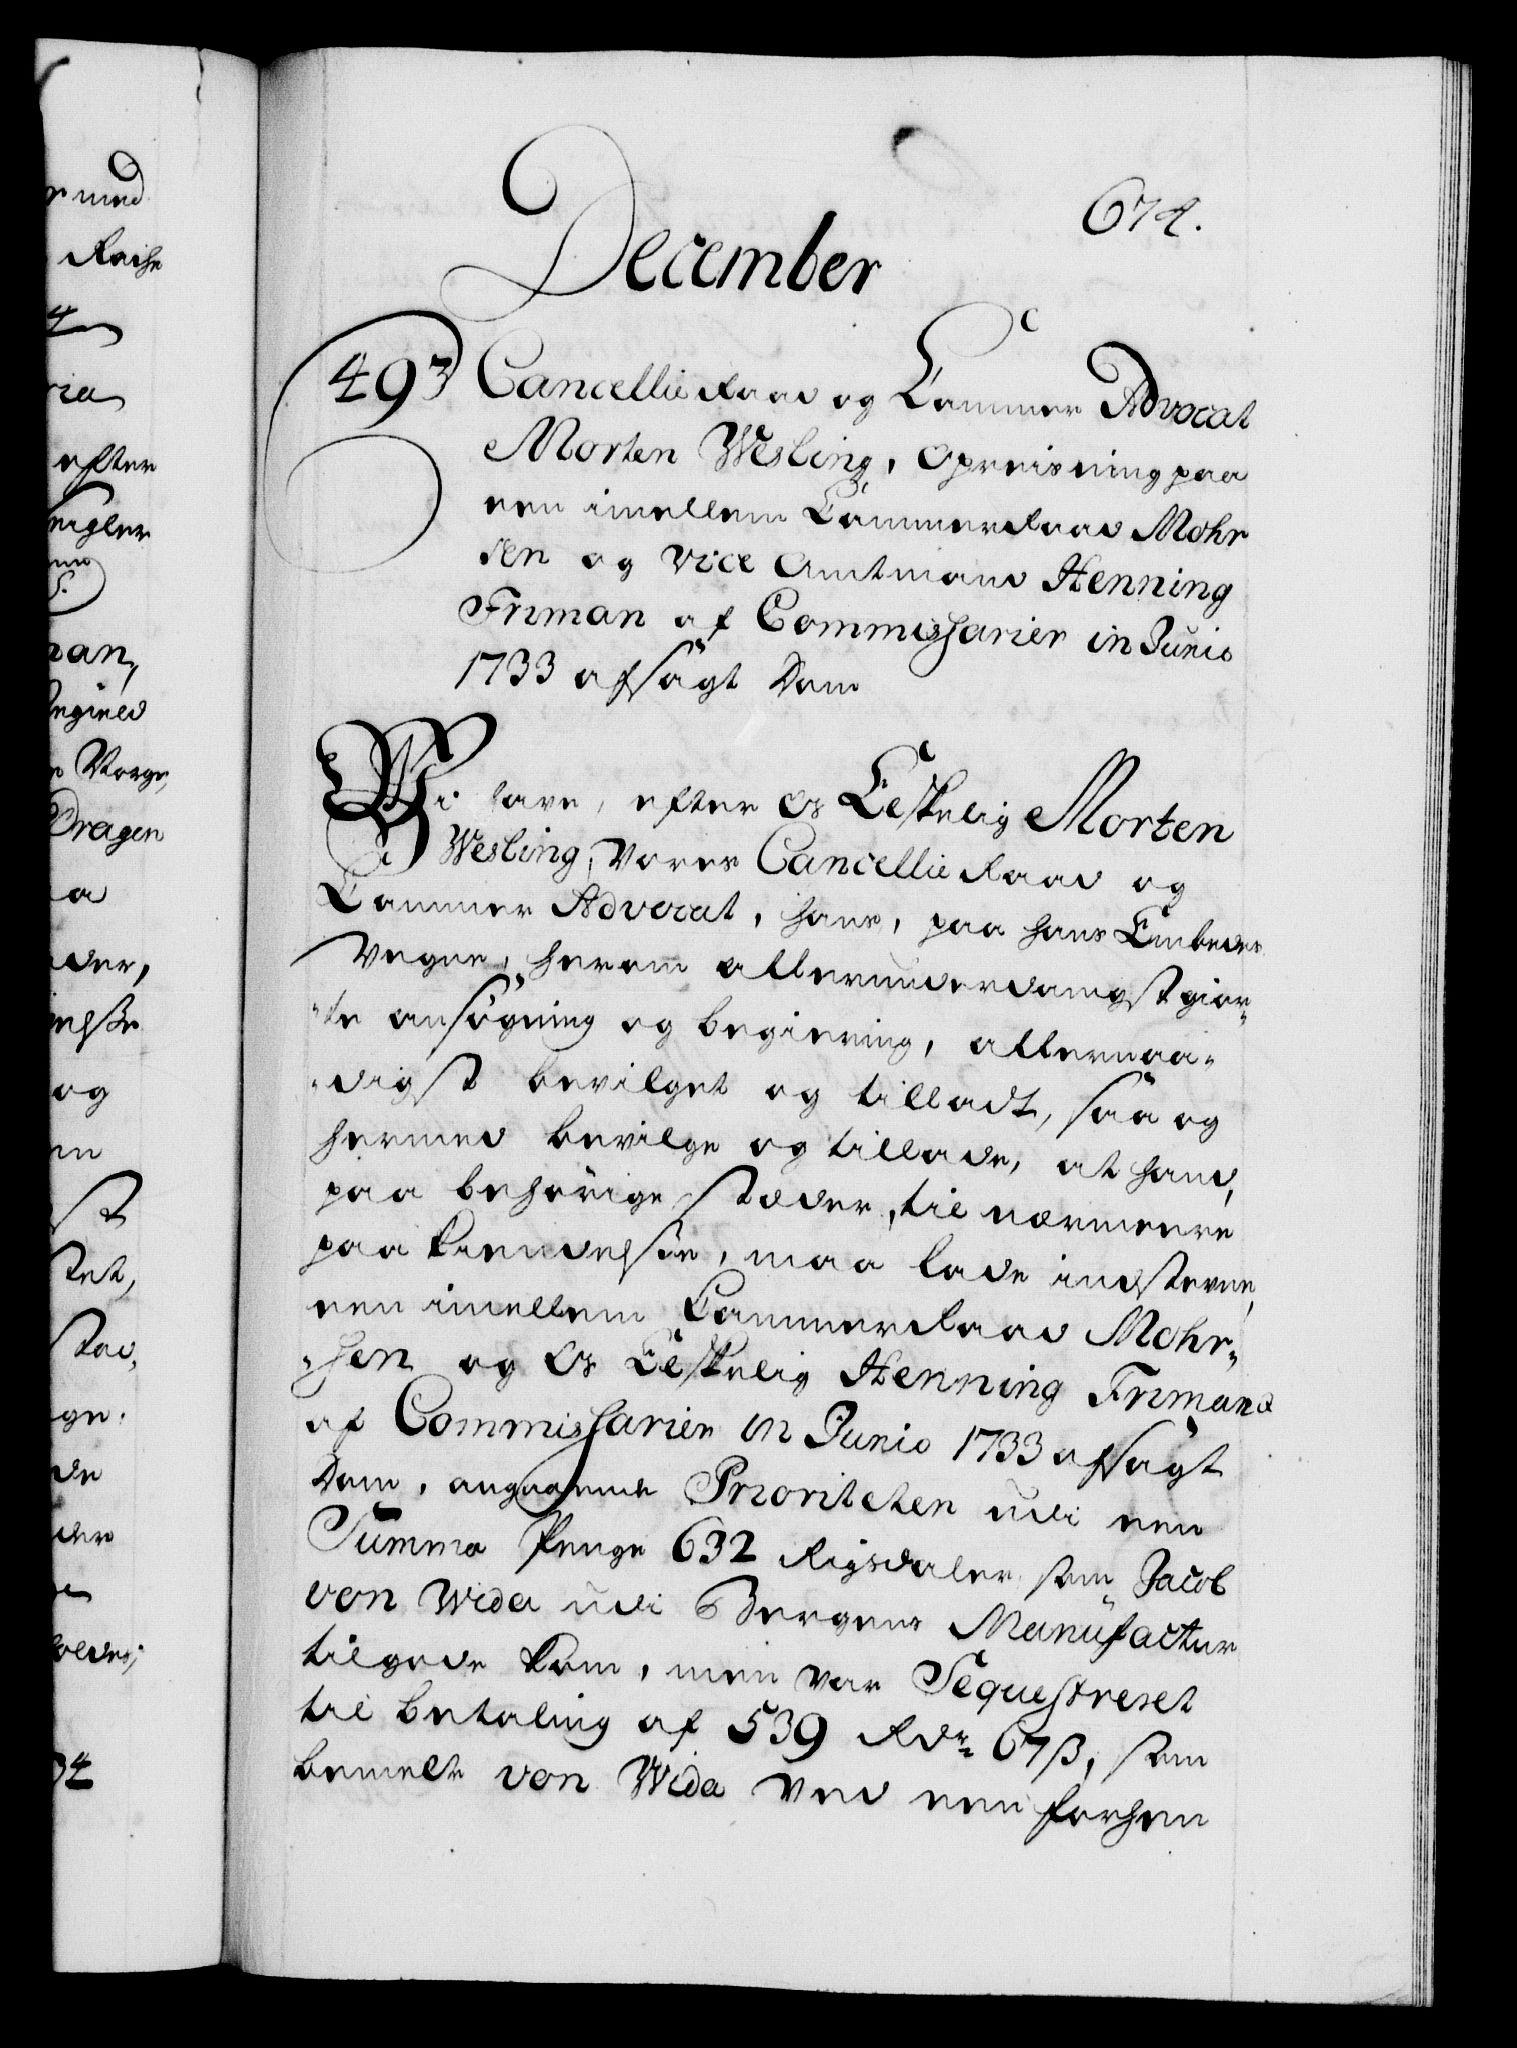 674.
December
493 Cancellie Raad og Cammer Advocat
Morten Wesling, Opreisning paa
een imellem Cammerraad Mohr
sen og Vice Amtmand Henning
Friman af Commissarier in Junio
1733 afsagt Dom
Wi have, efter Os Elskelig Morten
Wesling, Vores Cancellie Raad og
Cammer Advocat, hans, paa hans Embedes
Vegne, herom allerunderdanigst gior-
te ansøgning og begiering, allernaa-
digst bevilget og tilladt, saa og
hermed bevilge og tillade, at hand,
paa behørige stæder, til nærmere
paa kiendelse, maa lade indstevne,
een imellem Cammerraad Mohr-
sen og Os Elskelig Henning Frimand
af Commissarier in Junio 1733 afsagt
Dom, angaaende Prioriteten udi een
Summa Penge 632 Rigsdaler som Jacob
von Wida udi Bergens Manufactur
tilgode kom, men var Sequestreret
til betaling af 539 Rdr 67 ß, som
bemelte von Wida ved een forhen
r med
Raise
4
ria
efter
nan,
Dragen
a
og
st
tet,
de
der
34